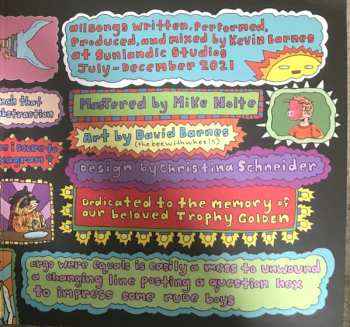 all songs written, performed,
produced, and mixed by Kevin Barnes
at Sunlandic Studios
July - December 2021
Mastered by Mike Nolte
Art by David Barnes
(the bee with wheels)
Design by Christina Schneider
Dedicated to the memory of
our beloved Trophy Golden
that
abstraction
ergo were equals is easily a mess to unwound
a changing line posting a question hex
to impress some rude boys